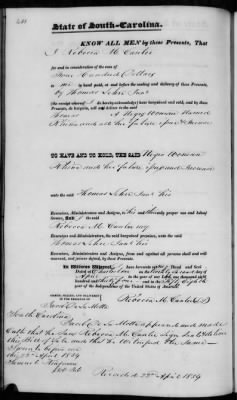 State of South-Carolina.
KNOW ALL MEN by these Presents, That
I Rebecca M Canter
for and in consideration of the sum of
Four Hundred Dollars
to me in hand paid, at and before the sealing and delivery of these Presents,
by Thomas Lehre Junr
(the receipt whereof I do hereby acknowledge) have bargained and sold, and by these
Presents, do bargain, sell and deliver to the said
Thomas A Negro Woman Named
and all her future Issue & Increase
TO HAVE AND TO HOLD, THE SAID Negro Woman
and all her future Issue and Increase
unto the said Thomas Lehre Junr his
Executors, Administrators and Assigns, to his and their only proper use and behoof
forever. And I the said
Rebecca M Cantor my
Executors and Administrators, the said bargained premises, unto the said
Thomas Lehre Junr his
Executors, Administrators and Assigns, from and against all persons shall and will
warrant, and forever defend, by these Presents.
In Witness Whereof, I have hereunto set my Hand and Seal
Dated at Charleston on the day of
April in the year of our Lord one thousand eight
hundred and thirty four and in the Fifty eighth
year of the Independence of the United States of America.
SIGNED, SEALED, AND DELIVERED
IN THE PRESENCE OF
Rebecca M Cantor
South Carolina
appeared and made
Oath that he saw Rebecca M Cantor Sign Seal & deliver
this Bill of Sale and that he Witnessed the Same
Sworn to before me
this 22nd April 1834
Recorded 22nd April 1834